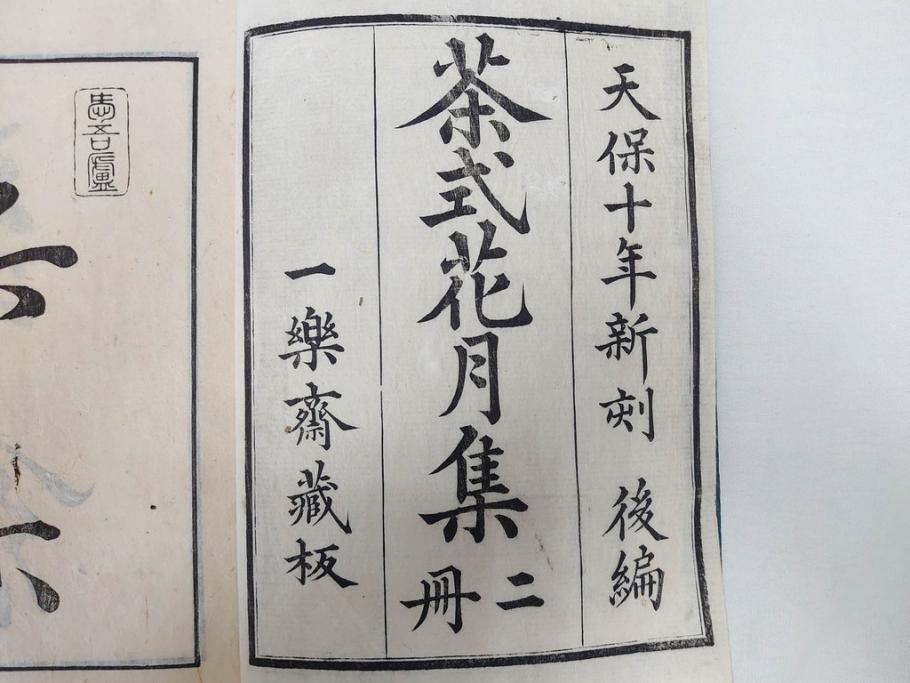 天保十年新刻 後編
茶式花月集
二冊
一樂齋藏板